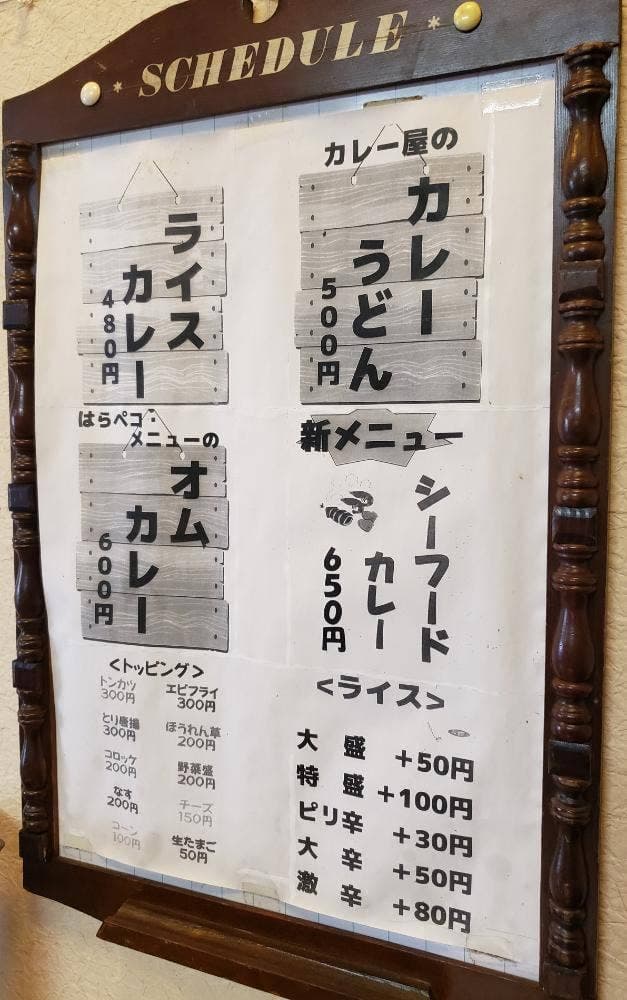 SCHEDULE
カレー屋の
カレー
うどん
500円
ライス
カレー
480円
はらペコ・
メニューの
オム
カレー
600円
新メニュー
シーフード
カレー
650円
<トッピング>
トンカツ
300円
エビフライ
300円
とり唐揚
300円
ほうれん草
200円
コロッケ
200円
野菜盛
200円
なす
200円
チーズ
150円
コーン
100円
生たまご
50円
<ライス>
大 盛 +50円
特 盛 +100円
ピリ辛 +30円
大 辛 +50円
激 辛 +80円